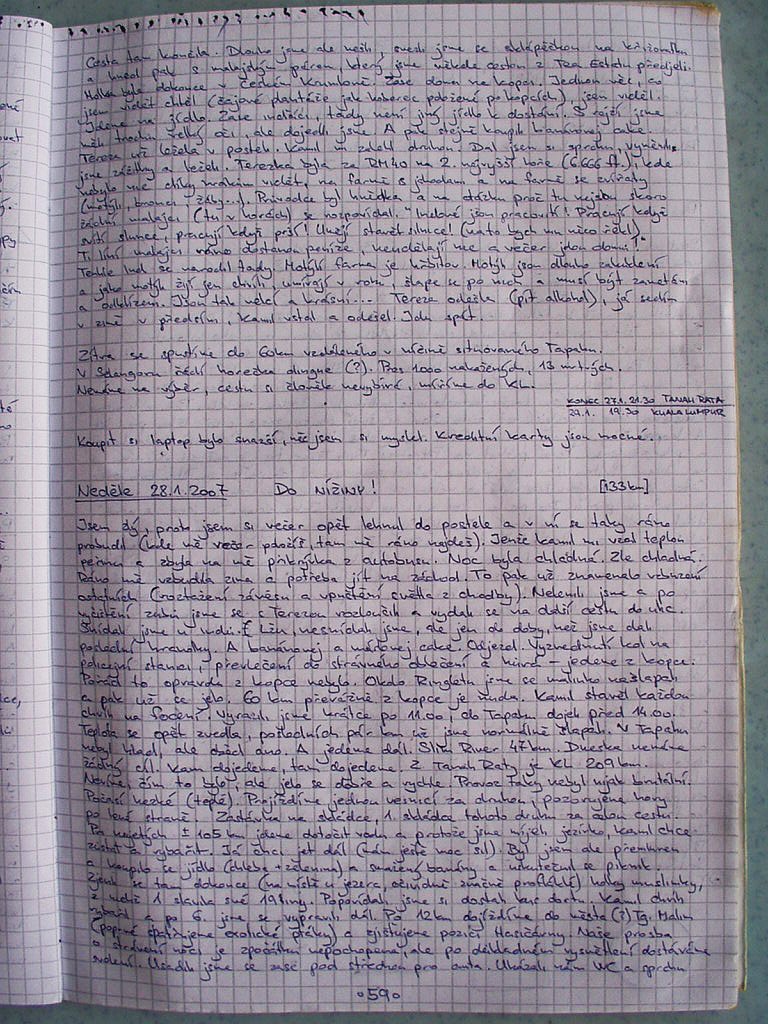 Cesta tam končila. Dlouho jsme ale nešli, svezli jsme se sklápěčkou na křižovatku
a hned pak s malajským párem, který jsme někde cestou z Tea Estate předjeli.
Holka byla dokonce v Českém Krumlově. Zase doma na kopci. Jednou věc, co
jsem vidět chtěl (čajové plantáže jak koberec položené po kopcích), jsem viděl.
Jdeme na jídlo. Zase indické, tady není jiný jídlo k dostání. S rýží jsme
měli trochu velký oči, ale dojedli jsme. A pak stejně koupili banánovej cake.
Tereza už ležela v posteli. Kamil zalehl druhou. Dal jsem si sprchu,
jsme zážitky a leželi. Terezka byla za RM40 na 2. nejvyšší hoře (6.666 ft.), kde
nebylo nic díky mrakům vidět, na farmě s jahodami a na farmě se zvířaty
(motýli, brouci, žáby...). Průvodce byl hindík a na otázku proč tu nejsou skoro
žádní malajci (tu v horách) se rozpovídal. "Indové jsou pracovití! Pracují když
svítí slunce, pracují když prší! Umějí stavět silnice! (na to bych mu něco řekl)
Ti líní malajci ráno dostanou peníze, neudělají nic a večer jdou domů!"
Tenhle Ind se narodil tady. Motýlí farma je hřbitov. Motýli jsou dlouho zakuklení
a jako motýli žijí jen chvíli, umírají v rohu, šlape se po nich a musí být zametáni
a odklízeni. Jsou tak velcí a krásní... Tereza odešla (pít alkohol), já sedím
v zimě v předsíni, Kamil vstal a odešel. Jdu spát.
Zítra se spustíme do 60km vzdáleného v nížině situovaného Tapahu.
V Selangoru řádí horečka dingue (?). Přes 1000 nakažených, 13 mrtvých.
Nemáme na výběr, cestu si člověk nevybírá, míříme do KL.
KONEC 27.1. 21.30 TANAH RATA
29.1. 19.30 KUALA LUMPUR
Koupit si laptop bylo snazší, než jsem si myslel. Kreditní karty jsou mocné.
Neděle 28.1.2007 DO NÍŽINY! [133km]
Jsem zlý, proto jsem si večer opět lehnul do postele a v ní se taky ráno
probudil (kde mě večer položíš, tam mě ráno najdeš). Jenže Kamil mi vzal teplou
peřinu a zbyla na mě přikrývka z autobusu. Noc byla chladná. Zle chladná.
Ráno mě vzbudila zima a potřeba jít na záchod. To pak už znamenalo vzbuzení
ostatních (roztažení závěsu a vpuštění světla z chodby). Nelenili jsme a po
vyčištění zubů jsme se s Terezou rozloučili a vydali se na další cestu do ulic.
Snídali jsme u Indů. Lžu, nesnídali jsme, ale jen do doby, než jsme dali
poslední hranolky. A banánovej a mrkvovej cake. Odjezd. Vyzvednutí kol na
policejní stanici, převlečení do strávného oblečení a hurá – jedeme z kopce.
Pořád to opravdu z kopce nebylo. Okolo Ringletu jsme se malinko našlapali
a pak už se jelo. 60 km převážně z kopce je nuda. Kamil stavěl každou
chvíli na focení. Vyrazili jsme krátce po 11.00, do Tapahu dojeli před 14.00.
Teplota se opět zvedla, posledních pár km už jsme normálně šlapali. V Tapahu
nebyl hlad, ale došel ano. A jedeme dál. Slim River 47km. Dneska nemáme
žádný cíl. Kam dojedeme, tam dojedeme. Z Tanah Raty je KL 209km.
Nevíme, čím to bylo, ale jelo se dobře a rychle. Provoz taky nebyl nijak brutální.
Počasí hezké (teplé). Projíždíme jednou vesnicí za druhou, pozorujeme hory
po levé straně. Zastávka na skládce, 1. skládka tohoto druhu za celou cestu.
Po ujetých ± 105 km jdeme dotočit vodu a protože jsme míjeli jezírko, Kamil chce
zůstat a rybařit. Já chci jet dál (mám ještě moc sil). Byl jsem ale přemluven
a koupilo se jídlo (chleba + zelenina) a smažený banány a uskutečnil se piknik.
Zjevily se tam dokonce (na místě u jezera, očividně značně profláklé) holky muslimky,
z nichž 1 slavila své 19tiny. Popovídali jsme si a dostali kus dortu. Kamil chvíli
rybařil a po 6. jsme se vypravili dál. Po 12km dojíždíme do města (?) Tg. Malim
(poprvé spatřujeme exotické ptáky) a zjišťujeme pozici Hasičárny. Naše prosba
o strávení noci je zpočátku nepochopena, ale po důkladném vysvětlení dostáváme
svolení. Usadili jsme se zase pod střechou pro auta. Ukázali nám WC a sprchu
°59°